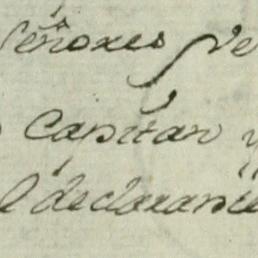 Señores
Capitan y
el declarante